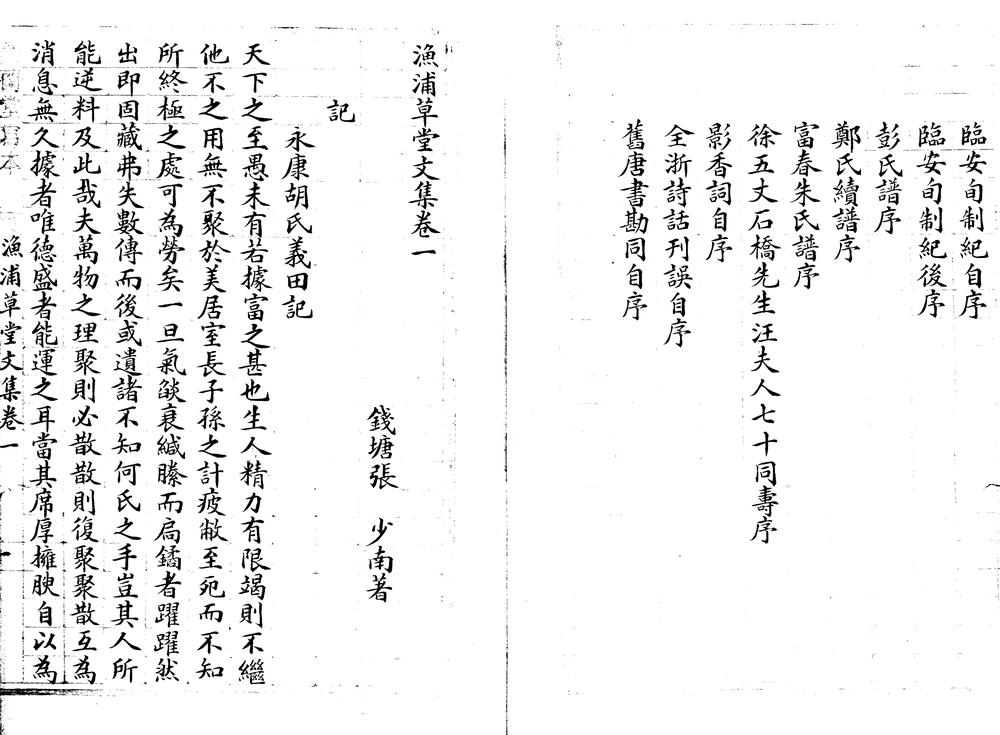 臨安旬制紀自序
臨安旬制紀後序
彭氏譜序
鄭氏續譜序
富春朱氏譜序
徐五丈石橋先生汪夫人七十同壽序
影香詞自序
全浙詩話刊誤自序
舊唐書勘同自序
漁浦草堂文集卷一
錢塘張 少南著
記
永康胡氏義田記
天下之至愚未有若據富之甚也生人精力有限竭則不繼
他不之用無不聚於美居室長子孫之計疲敝至死而不知
所終極之處可為勞矣一旦氣燄衰緘縢而扃鐍者躍躍然
出即固藏弗失數傳而後或遺諸不知何氏之手豈其人所
能逆料及此哉夫萬物之理聚則必散散則復聚聚散互為
消息無久據者唯德盛者能運之耳當其席厚擁腴自以為
漁浦草堂文集卷一